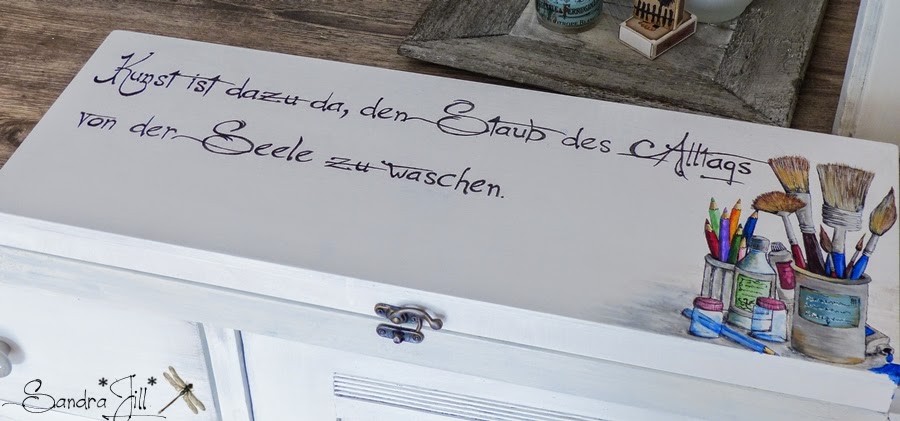 Kunst ist dazu da, den Staub des Alltags
von der Seele zu waschen.
Sandra*Jill*